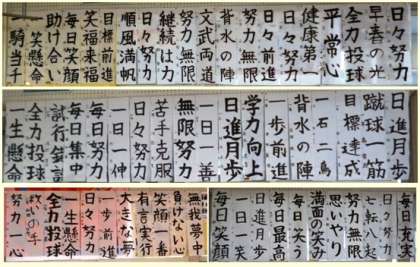 日々努力
早春の光
全力投球
平常心
健康第一
日々努力
日々前進
背水の陣
努力無限
文武両道
継続は力
日々努力
目標前進
順風満帆
笑う来福
毎日笑顔
助け合い
一笑懸命
一騎当千
蹴球一筋
目標達成
一石二鳥
背水の陣
一歩前進
学力向上
日進月歩
一日一善
無限努力
苦手克服
日々努力
一日一伸
毎日努力
毎日集中
試行錯誤
全力投球
一生懸命
無我夢中
負けない心
笑顔一番
有言実行
大きな夢
一歩前進
日々努力
一生懸命
全力投球
救いの手
努力一心
毎日充実
日々努力
七転八起
努力無限
思いやり
満面の笑み
毎日笑う
毎日最高
日進月歩
一日一笑
毎日笑顔